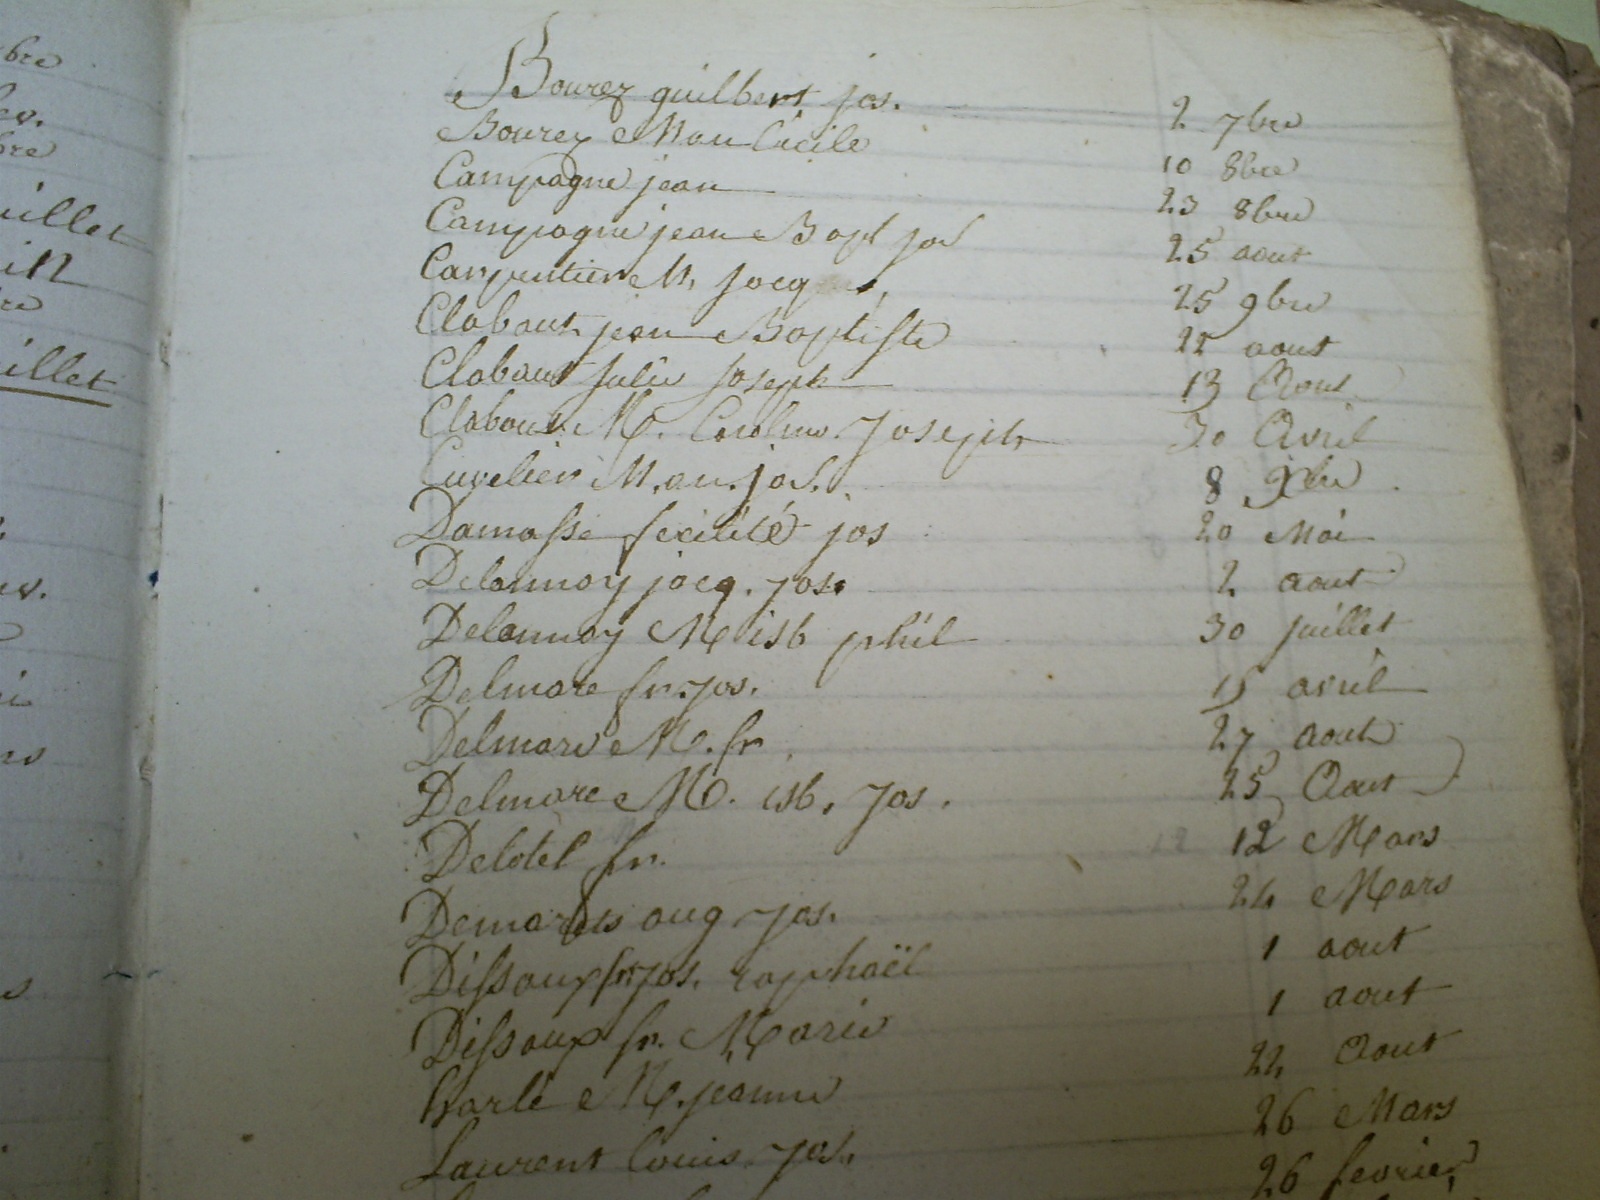 bre
uillet
illet
Bourez guilbert jos. 2 7bre
Bourez Marie Cécile 10 8bre
Campagne jean 23 8bre
Campagne jean Bapt jos 25 aout
Carpentier M. Jacq 25 9bre
Clabaut jean Baptiste 22 aout
Clabaut Julie Joseph 13 Aout
Clabaut M. Caroline Joseph 30 Avril
Cuvelier M. an. jos. 8 9bre
Damasse félicité jos 20 Mai
Delannoy jacq. jos. 2 aout
Delannoy M isb phil 30 juillet
Delmare fr. jos. 15 avril
Delmare M. fr. 27 aout
Delmare M. isb. Jos. 25 Aout
Delotel fr. 12 Mars
Demarets aug jos. 24 Mars
Dissaux fr. jos. raphaël 1 aout
Dissaux fr. Marie 1 aout
harlé M. jeanne 22 Aout
Laurent Louis jos. 26 Mars
26 fevrier